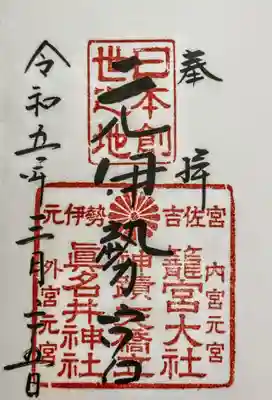 奉拝
日本創
世之地
元伊勢宮
元伊勢 吉佐宮
内宮元宮
籠宮大社
眞名井神社
外宮元宮
令和五年三月二五日